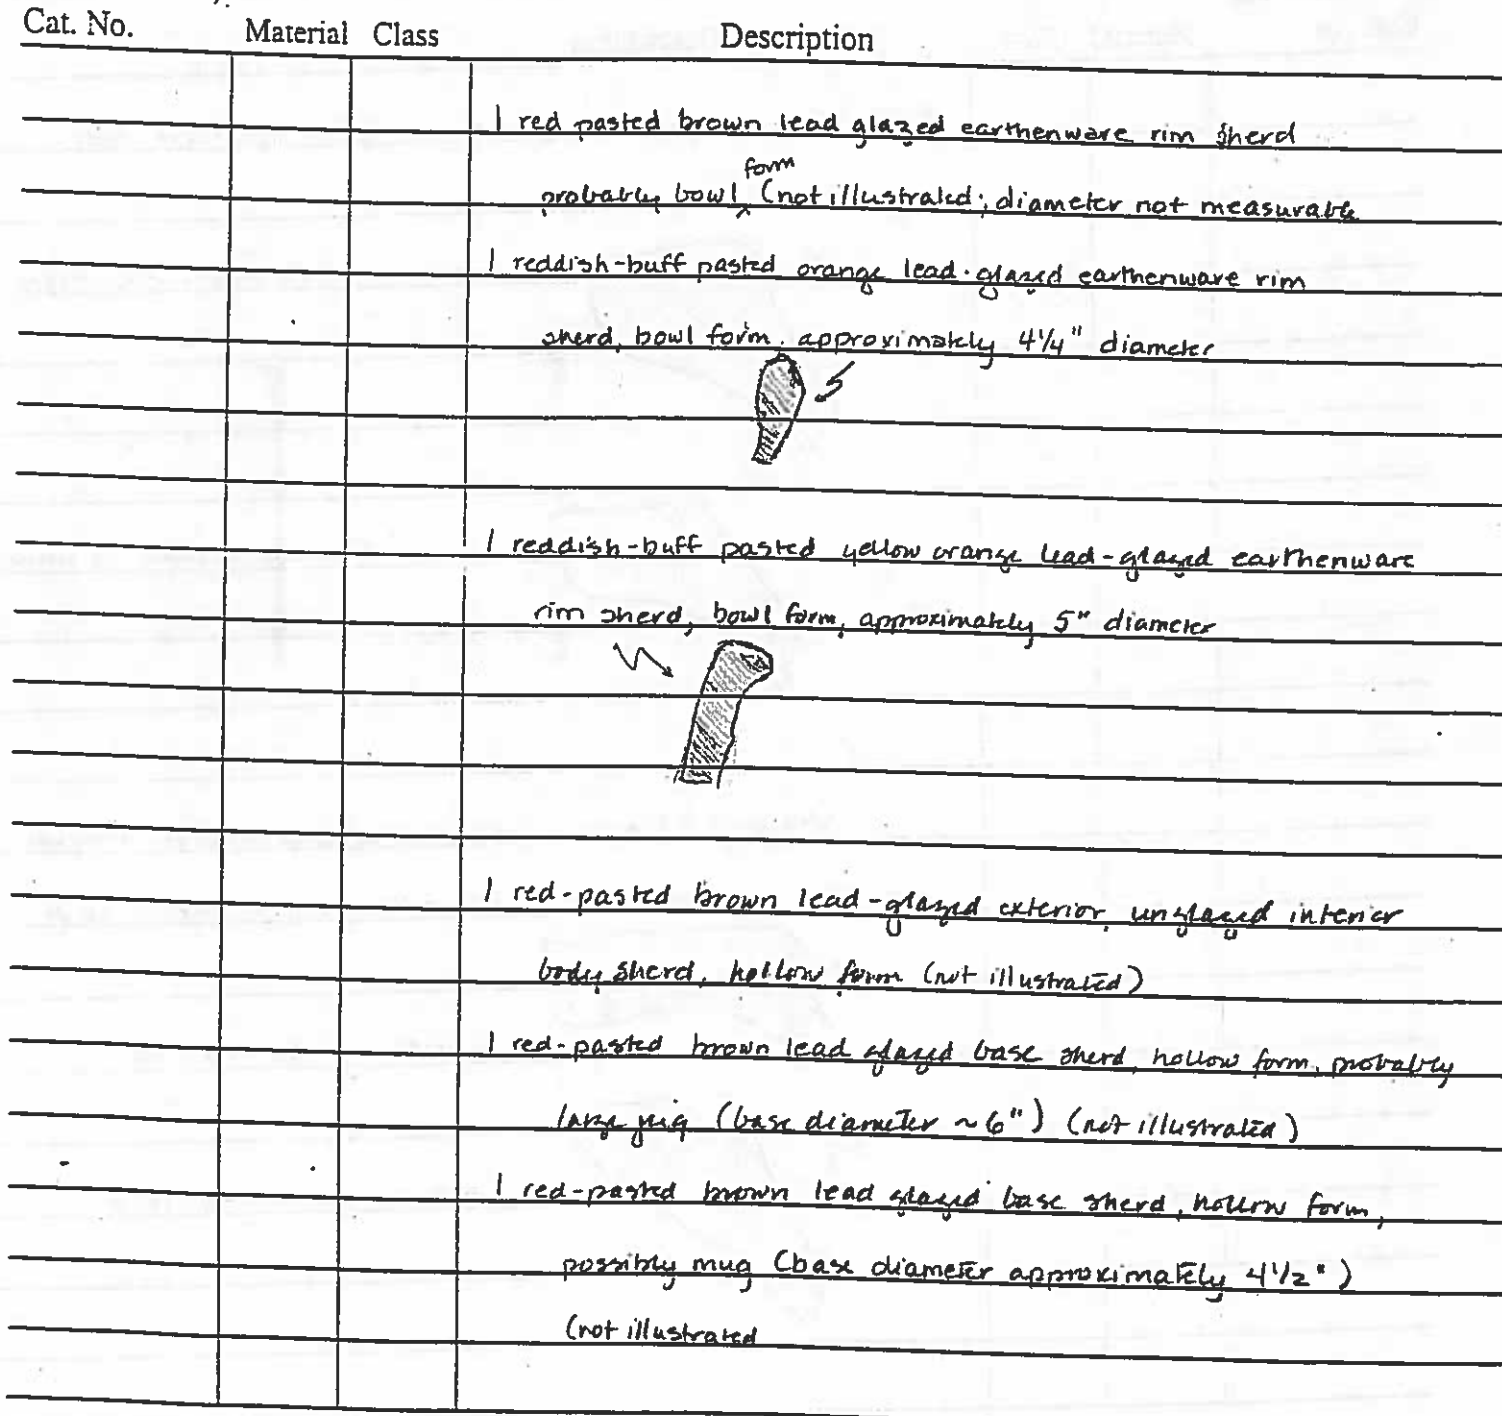 Cat. No. Material Class Description
1 red pasted brown lead glazed earthenware rim sherd
form
probably bowl ‸ (not illustrated; diameter not measurable
1 reddish-buff pasted orange lead-glazed earthenware rim
sherd, bowl form, approximately 4 1/4" diameter
1 reddish-buff pasted yellow orange lead-glazed earthenware
rim sherd, bowl form, approximately 5" diameter
1 red-pasted brown lead-glazed exterior, unglazed interior
body sherd, hollow form (not illustrated)
1 red-pasted brown lead glazed base sherd, hollow form, probably
large jug (base diameter ~ 6") (not illustrated)
1 red-pasted brown lead glazed base sherd, hollow form,
possibly mug (base diameter approximately 4 1/2")
(not illustrated